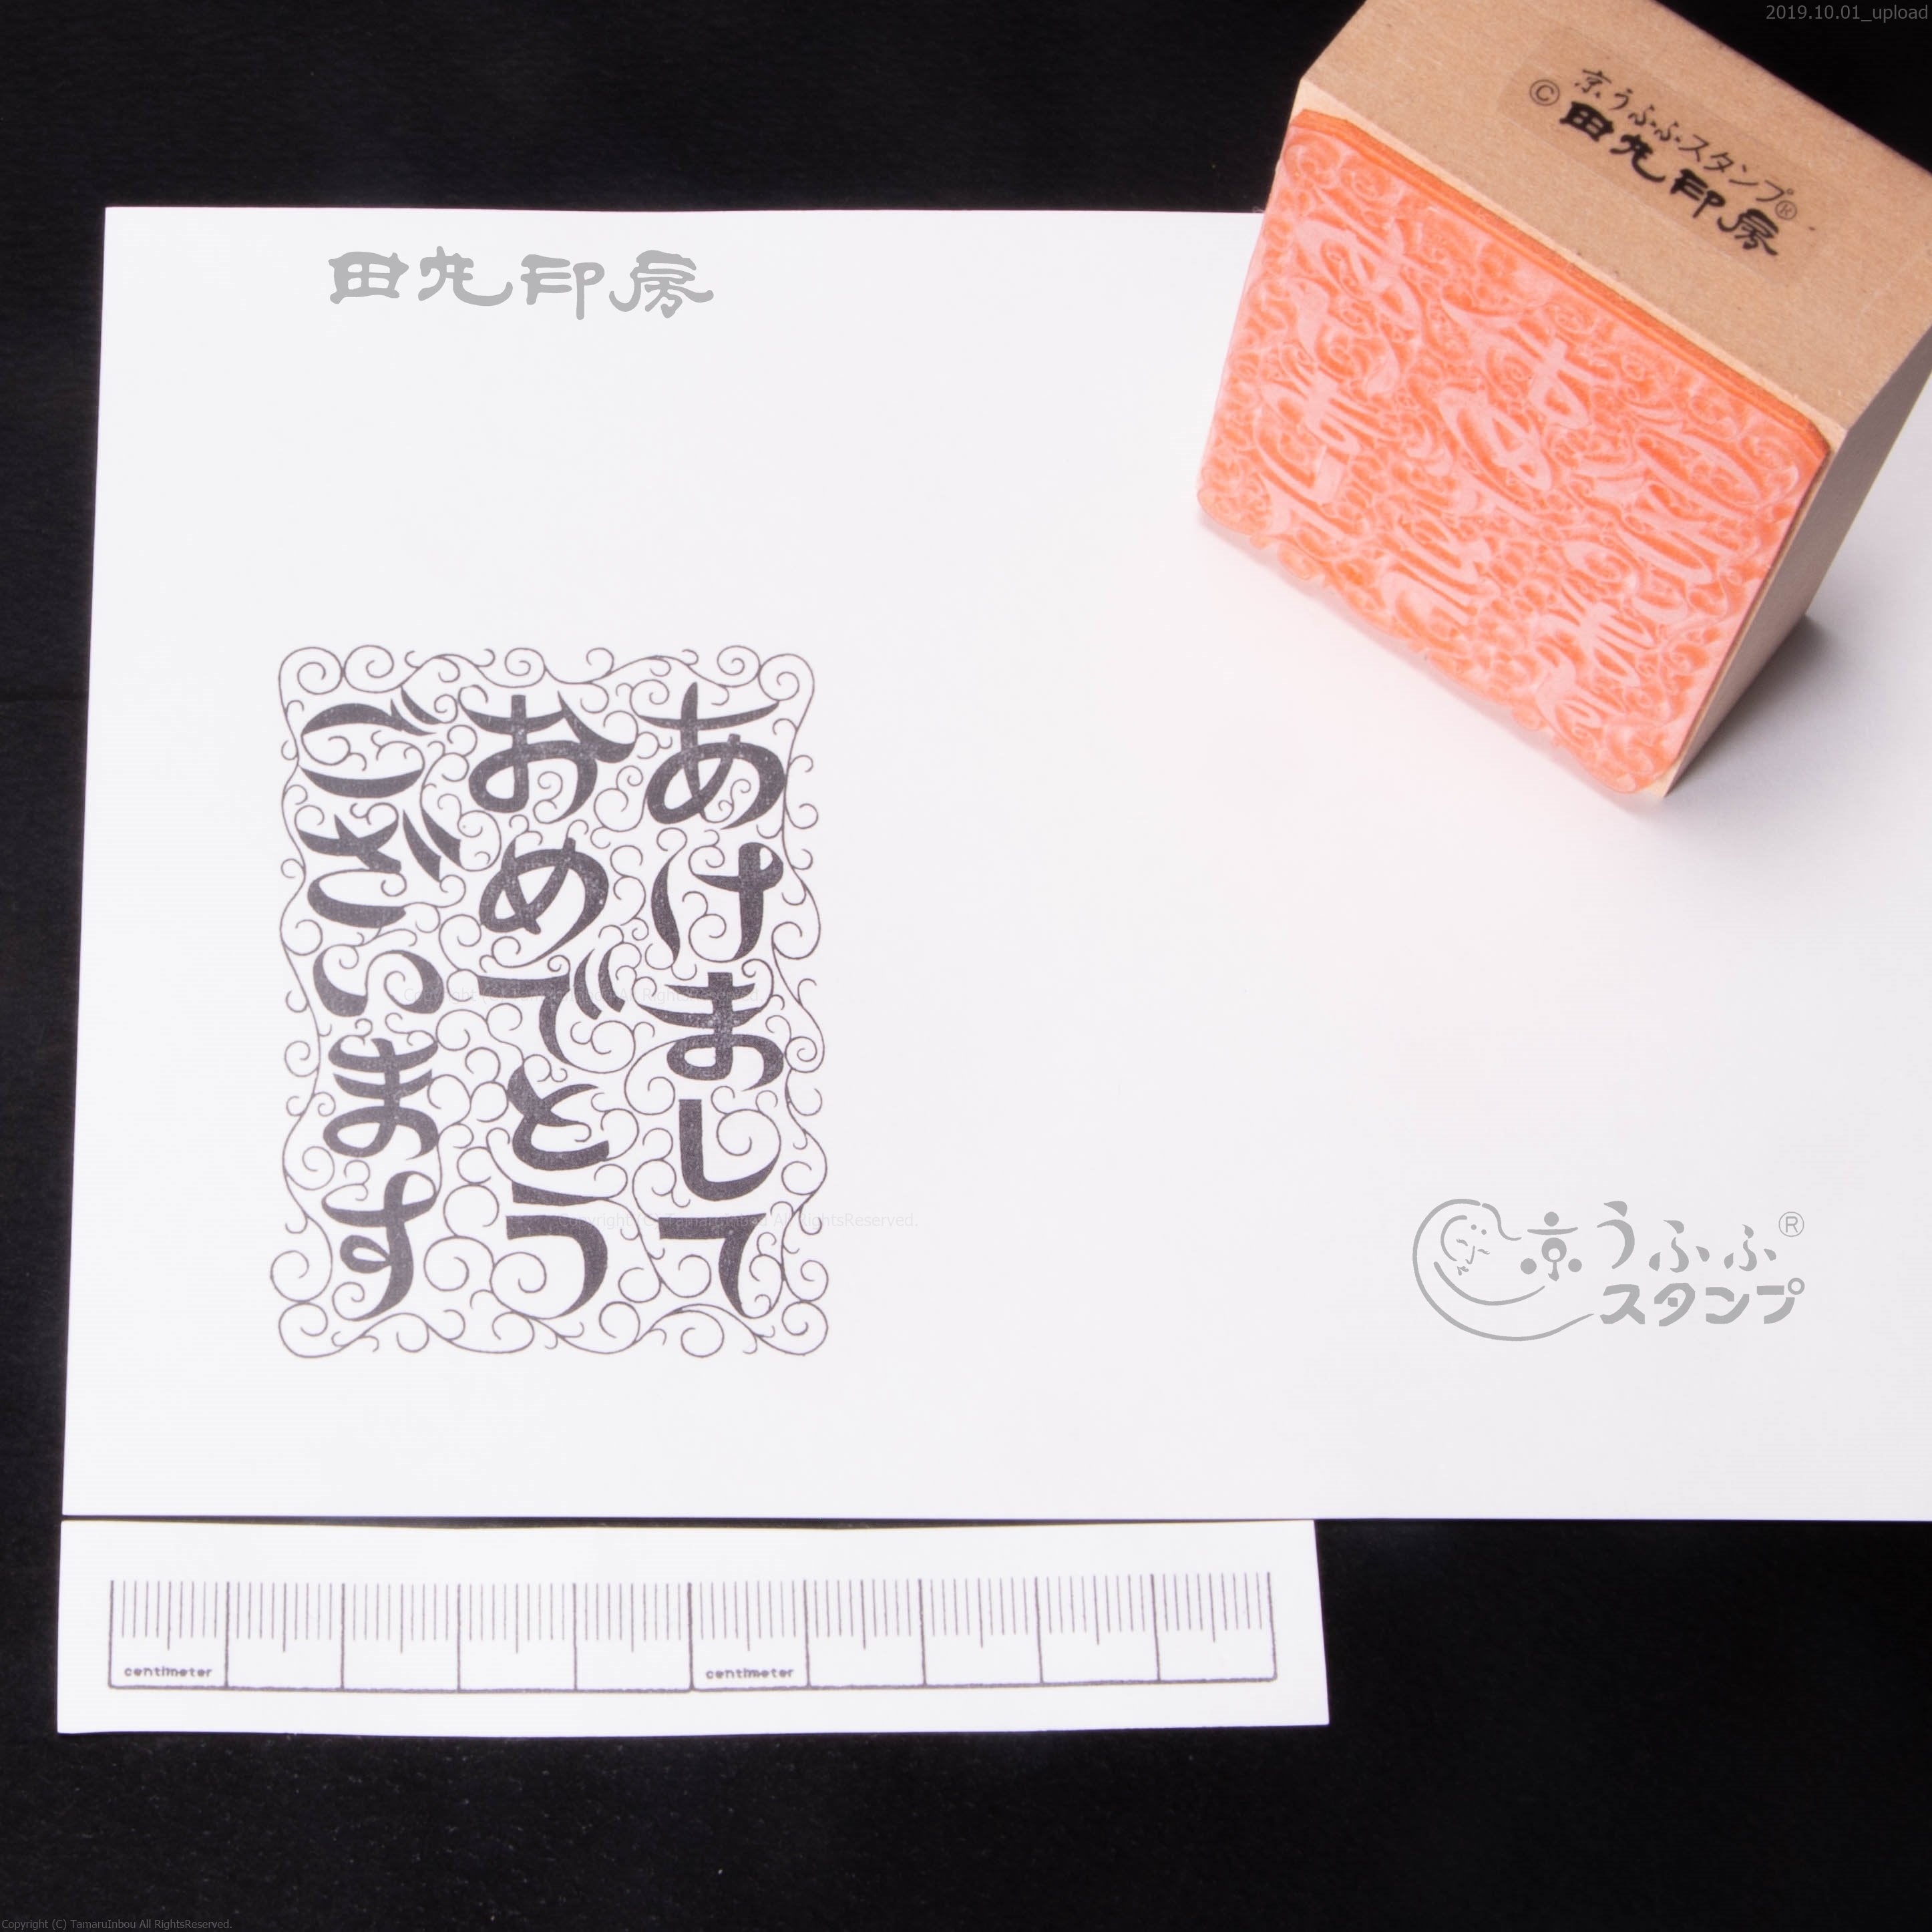 2019.10.01_upload
京うふふスタンプ®
© 田丸印房
田丸印房
あけまして
おめでとう
ございます
Copyright (C) TamaruInbou All RightsReserved.
Copyright (C) TamaruInbou All RightsReserved.
京うふふ®
スタンプ
centimeter
centimeter
Copyright (C) TamaruInbou All RightsReserved.